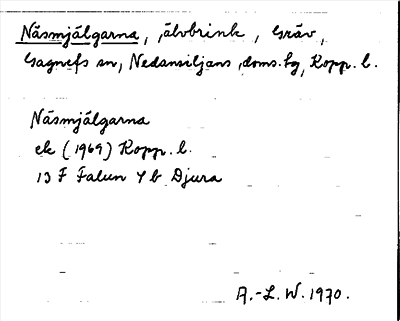 Näsmjälgarna, älvbrink, Gräv,
Gagnefs sn, Nedansiljans doms.hg, Kopp. l.
Näsmjälgarna
ek (1969) Kopp. l.
13 F Falun 4 b Djura
A.-L. W. 1970.